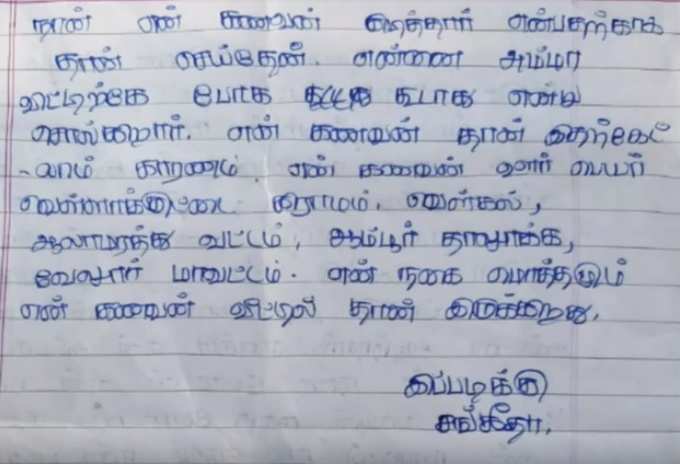 நான் என் கணவன் இழுத்தார் என்பதற்காக
தான் செய்தேன். என்னை அம்மா
வீட்டிற்கே போக கூடாது என்று
சொல்கிறார். என் கணவன் தான் இதற்கெ
-லாம் காரணம். என் கணவன் ஊர் பெயர்
கிராமம், வெள்கல்,
ஆலாமரத்து வட்டம், ஆம்பூர் தாலுாக்க,
வேலூர் மாவட்டம். என் நகை மொத்தமும்
என் கணவன் வீட்டில் தான் இருக்கிறது.
இப்படிக்கு
சங்கீதா.